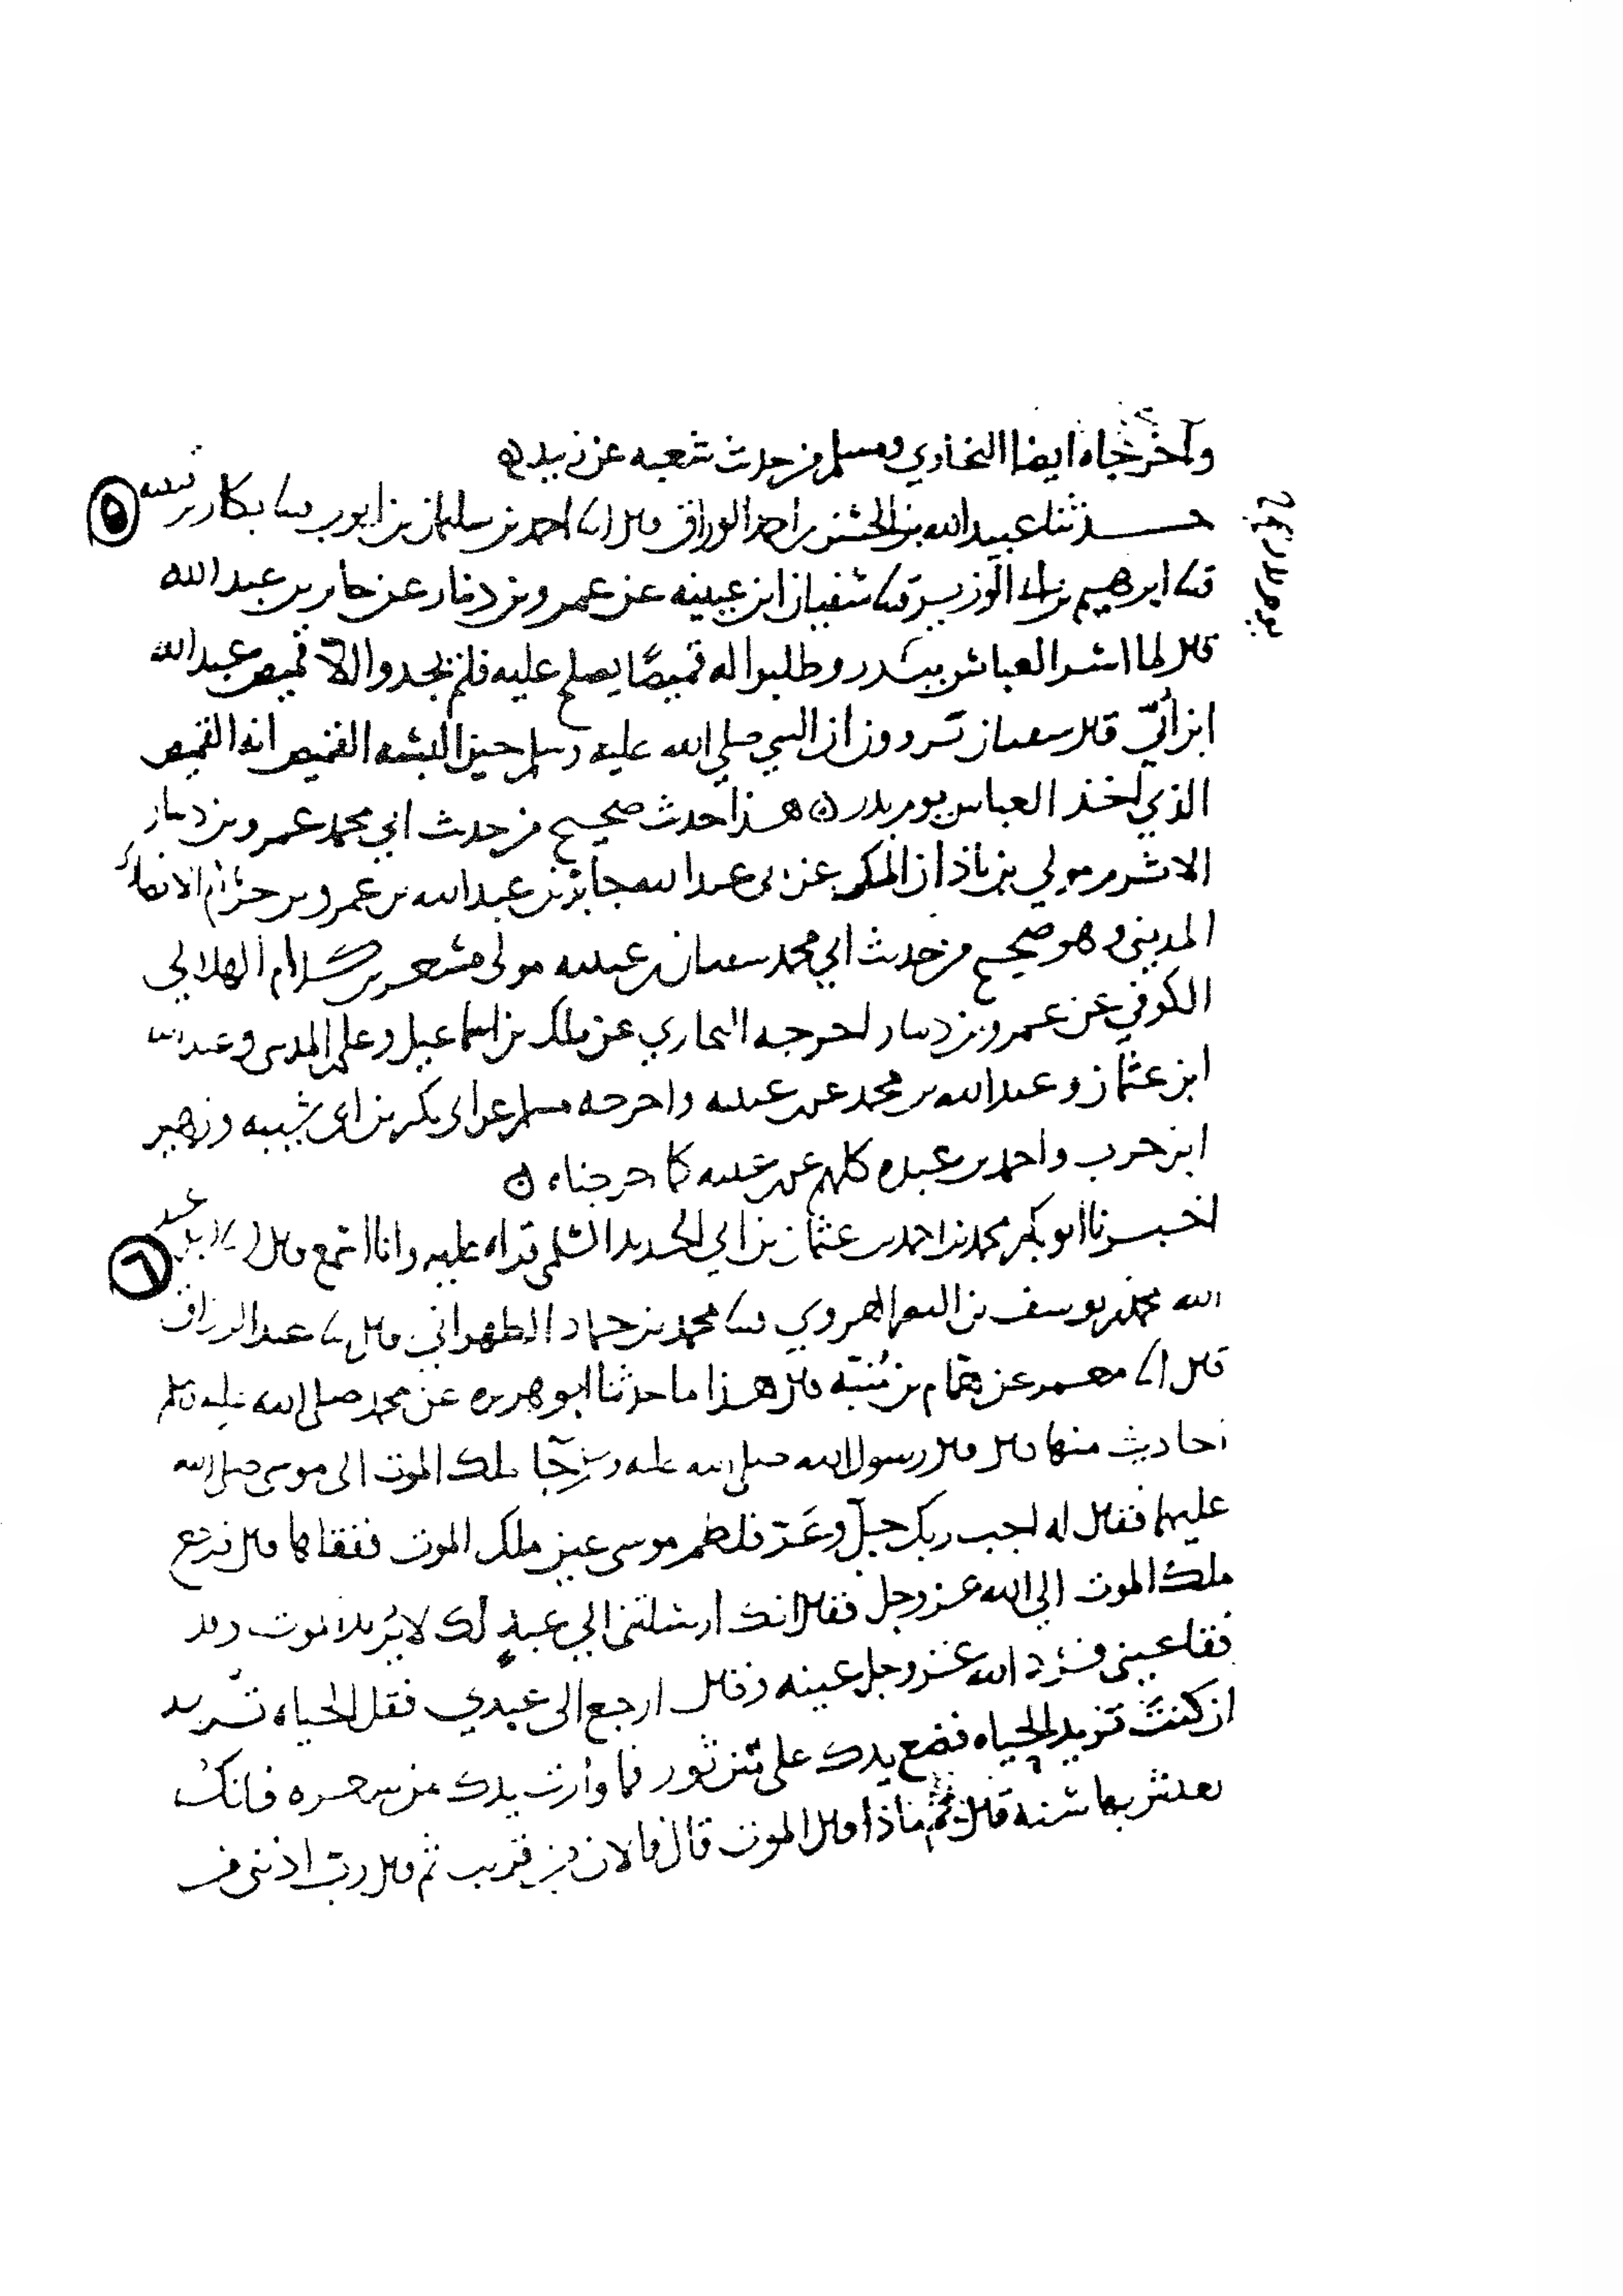 وأخرجاه ايضا البخاري ومسلم من حديث شعبة عن زبيد ه
حدثنا عبيد الله بن الحسن بن احمد الوراق قال انا احمد بن سليمان بن ايوب ثنا بكار بن قتيبه
ثنا ابرهيم بن ابي الوزير ثنا سفيان ابن عيينه عن عمرو بن دينار عن جابر بن عبد الله
قال لما اسر العباس ببدر وطلبوا له قميصا يصلح عليه فلم يجدوا الا قميص عبد الله
ابن أبي قال سفيان ترو ون ان النبي صلى الله عليه وسلم حين البسه القميص انه القميص
الذي اخذ العباس يوم بدر ن هذا حديث صحيح من حديث ابي محمد عمرو بن دينار
الاثرم مولى بن باذان المكي عن ابي عبد الله جابر بن عبد الله بن عمرو بن حرام الانصاري
المديني وهو صحيح من حديث ابي محمد سفيان بن عيينه مولى مسعر بن كدام الهلالي
الكوفي عن عمرو بن دينار اخرجه البخاري عن ملك بن اسماعيل وعلي المديني وعبد الله
ابن عثمان وعبد الله بن محمد عن بن عيينه واخرجه مسلم عن ابي بكر بن ابي شيبه وزهير
ابن حرب واحمد بن عبده كلهم عن بن عيينه كما اخرجناه ن
اخبرنا ابو بكر محمد بن احمد بن عثمان بن ابي الحديد السلمي قراه عليه وانا اسمع قال انا ابو عبد
الله محمد بن يوسف بن الهروي ثنا محمد بن حماد الطهراني قال ثنا عبد الرزاق
قال انا معمر عن همام بن منبه قال هذا ما حدثنا ابو هريره عن محمد صلى الله عليه وسلم
احاديث منها قال قال رسول الله صلى الله عليه وسلم جا ملك الموت الى موسى صلى الله
عليهما فقال له اجب ربك جل وعز فلطم موسى عين ملك الموت ففقاها قال فرجع
ملك الموت الى الله عز وجل فقال انك ارسلتني الى عبد لك لا يريد الموت وقد
فقا عيني فرد الله عز وجل عينه وقال ارجع الى عبدي فقل الحياه تريد
ان كنت تريد الحياه فضع يدك على متن ثور فما وارت يدك من شعره فانك
تعيش بها سنه قال ثم ماذا قال الموت قال فالان من قريب ثم قال رب ادنني من
يوم بدر
٥
٦